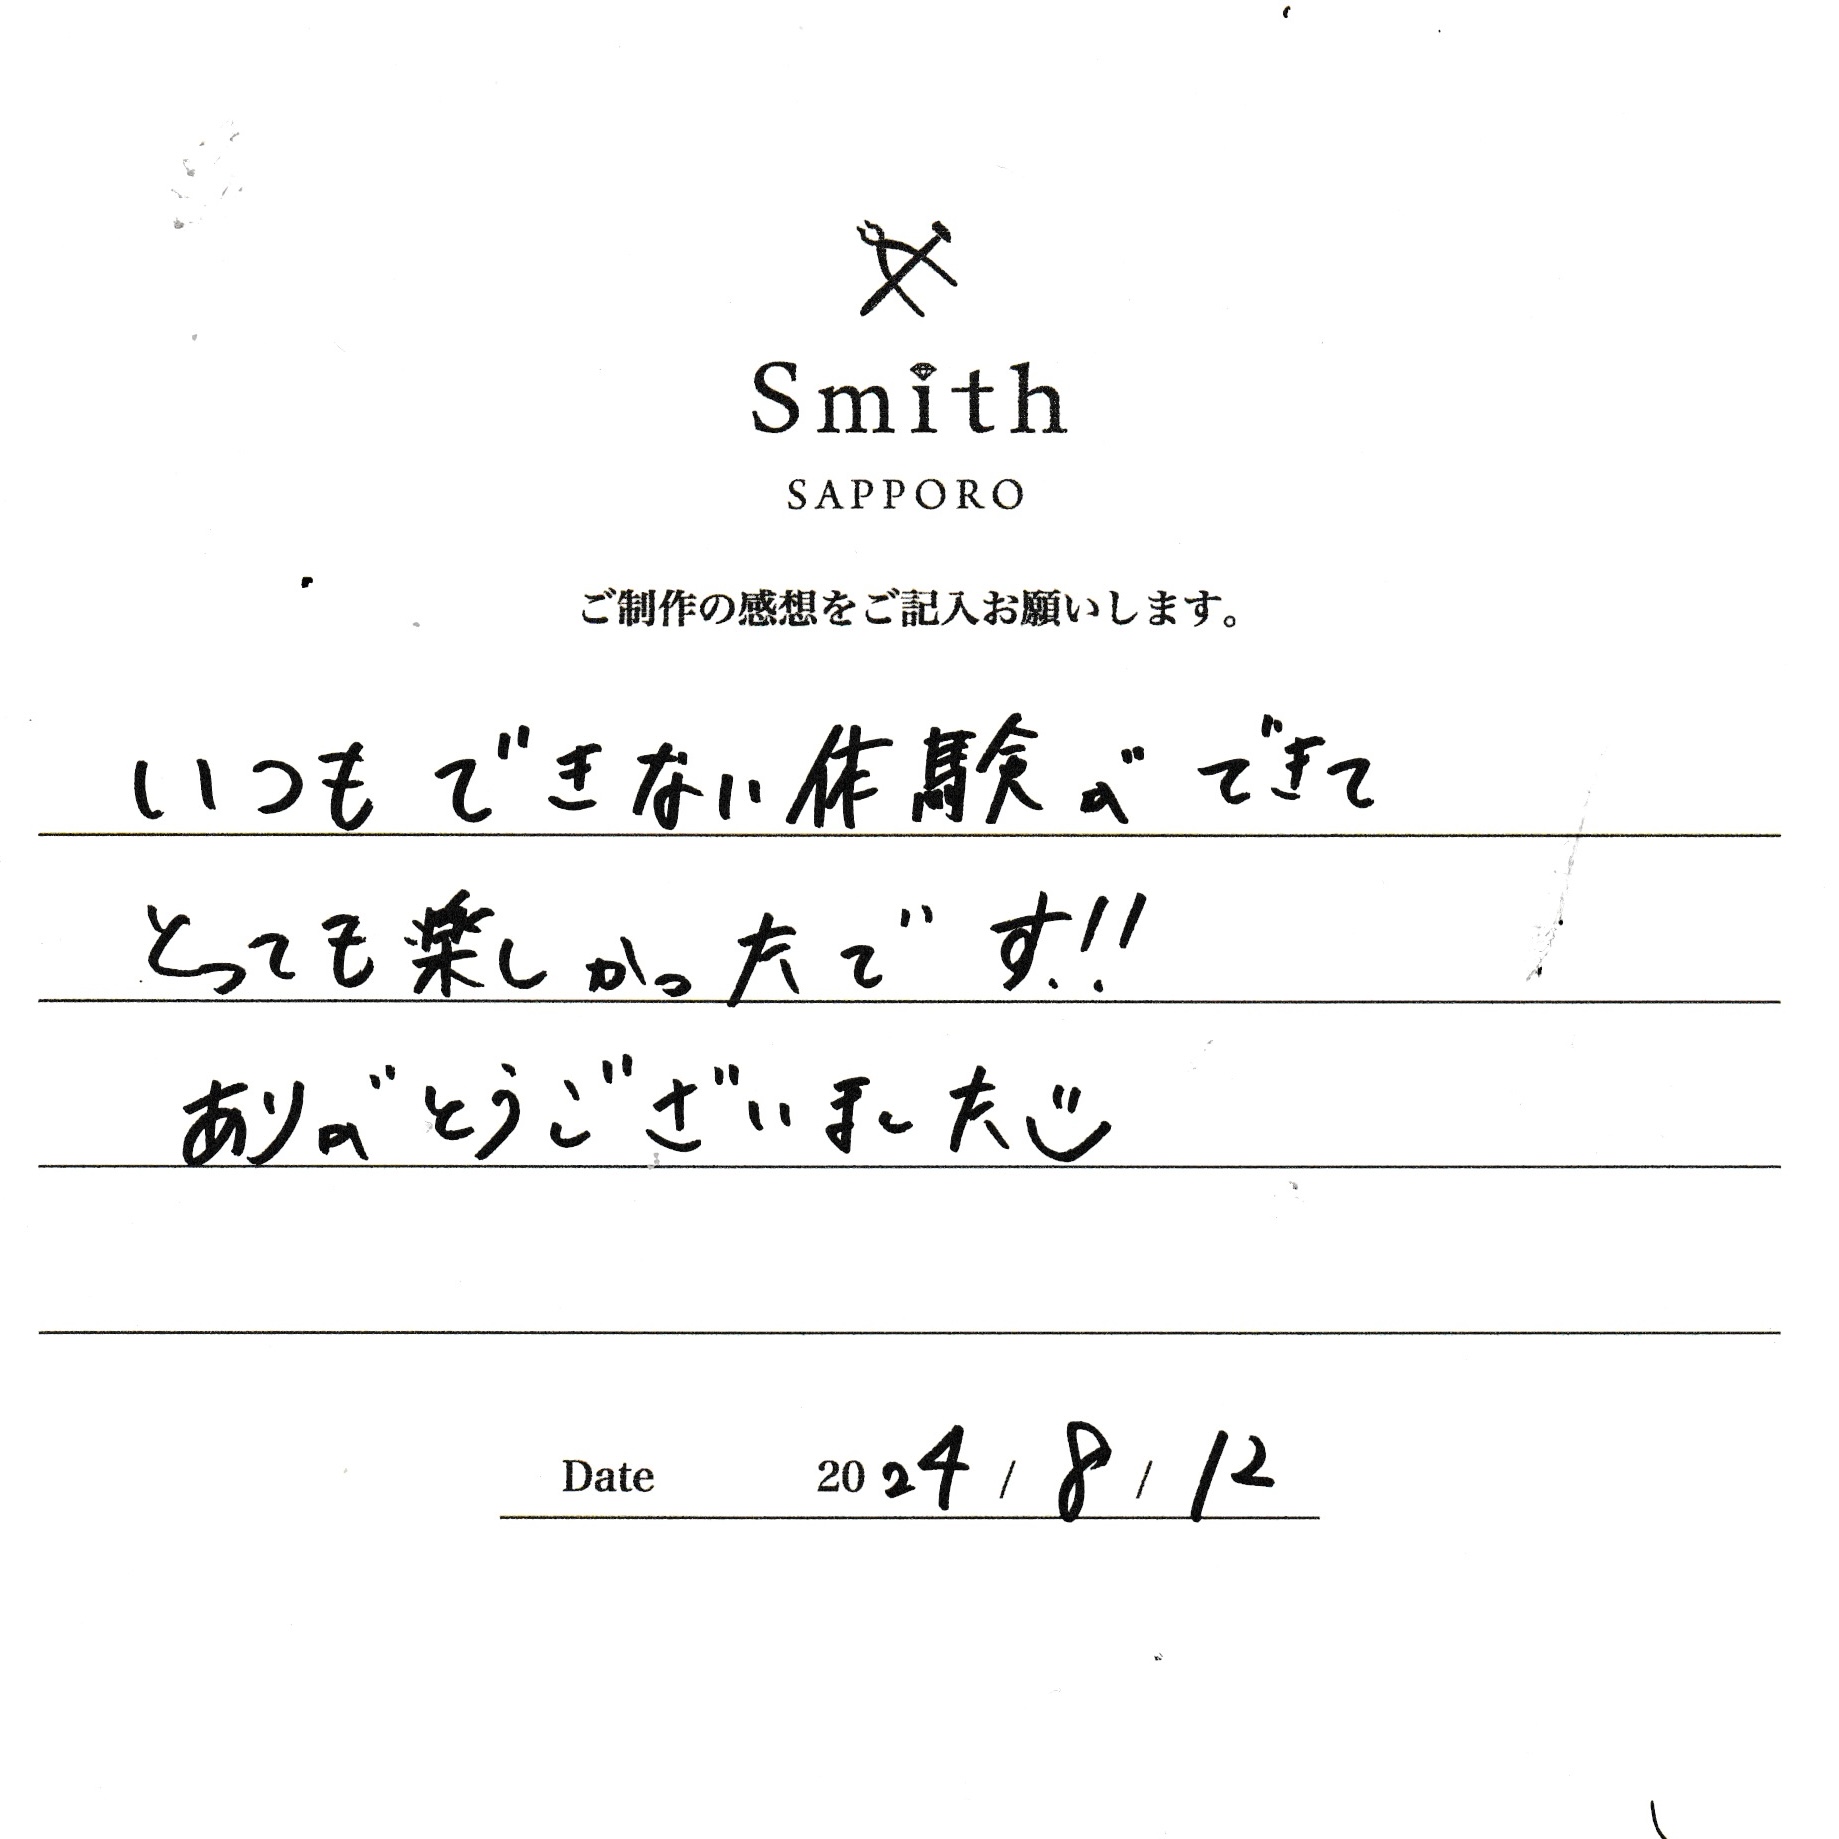 Smith
SAPPORO
ご制作の感想をご記入お願いします。
いつもできない体験ができて
とっても楽しかったです!!
ありがとうございました
Date 2024 / 8 / 12